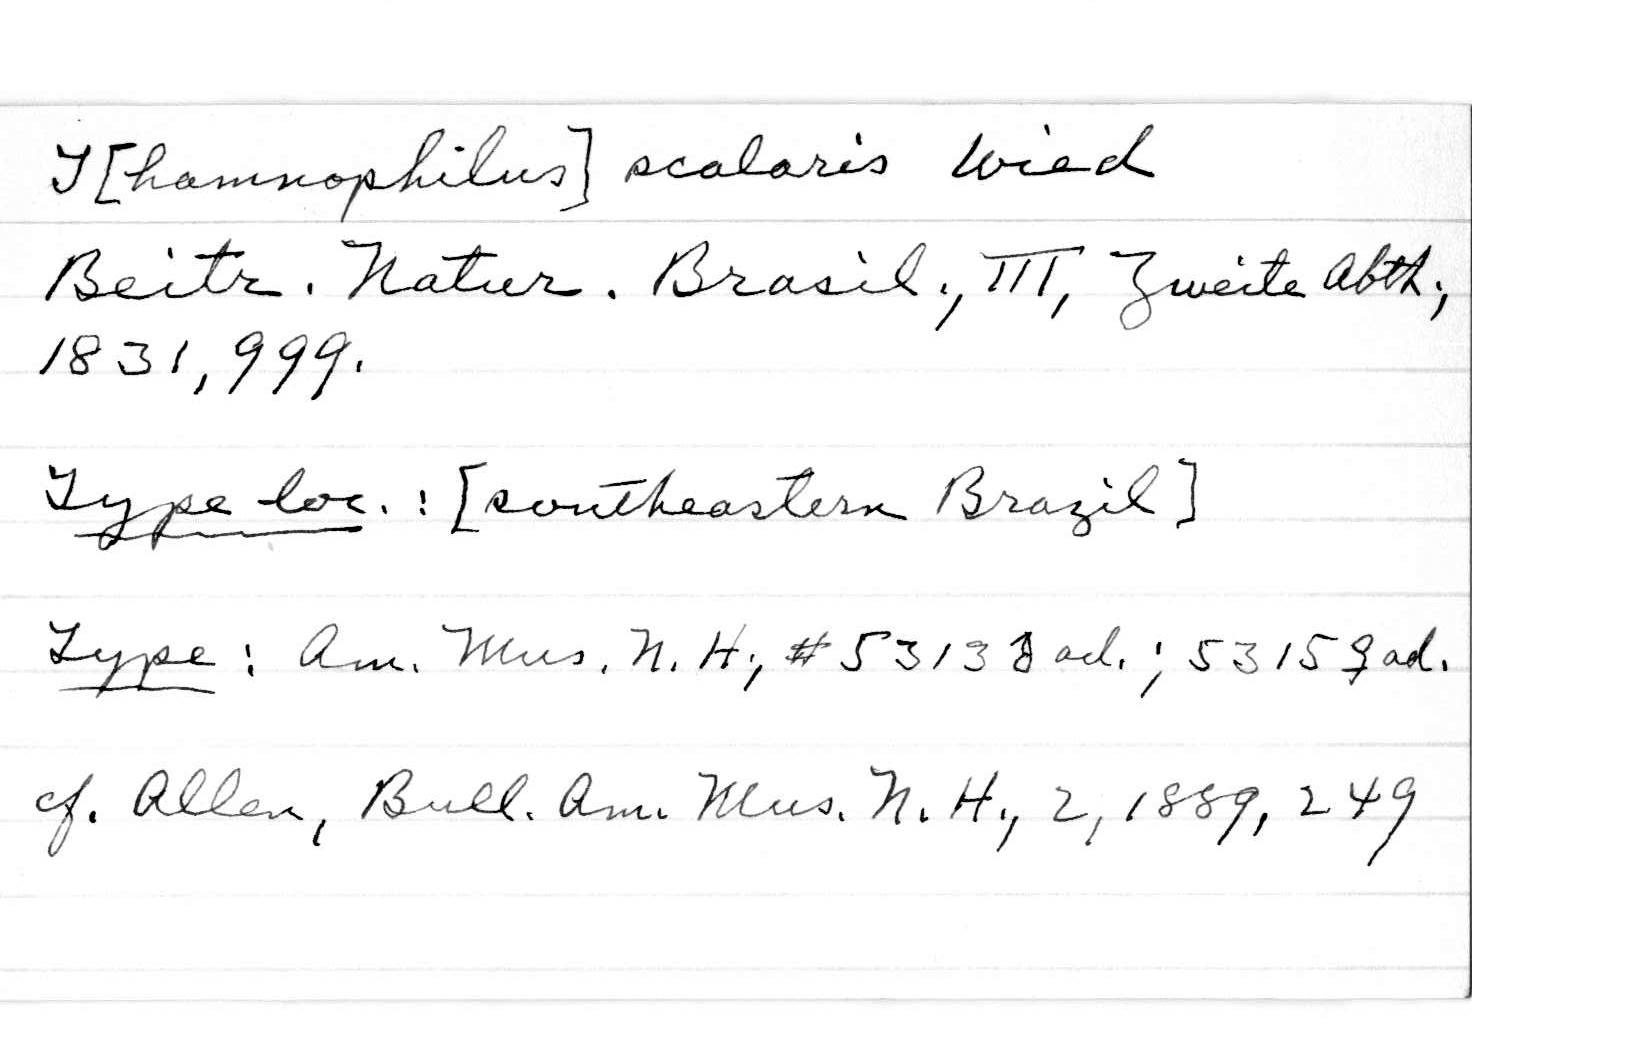 T[hamnophilus] scalaris Wied
Beitr. Natur. Brasil., III, Zweite Abth.,
1831, 999.
Type loc.: [southeastern Brazil]
Type: Am. Mus. N.H., #5313 ♂ ad.; 5315 ♀ ad.
cf. Allen, Bull. Am. Mus. N.H., 2, 1889, 249